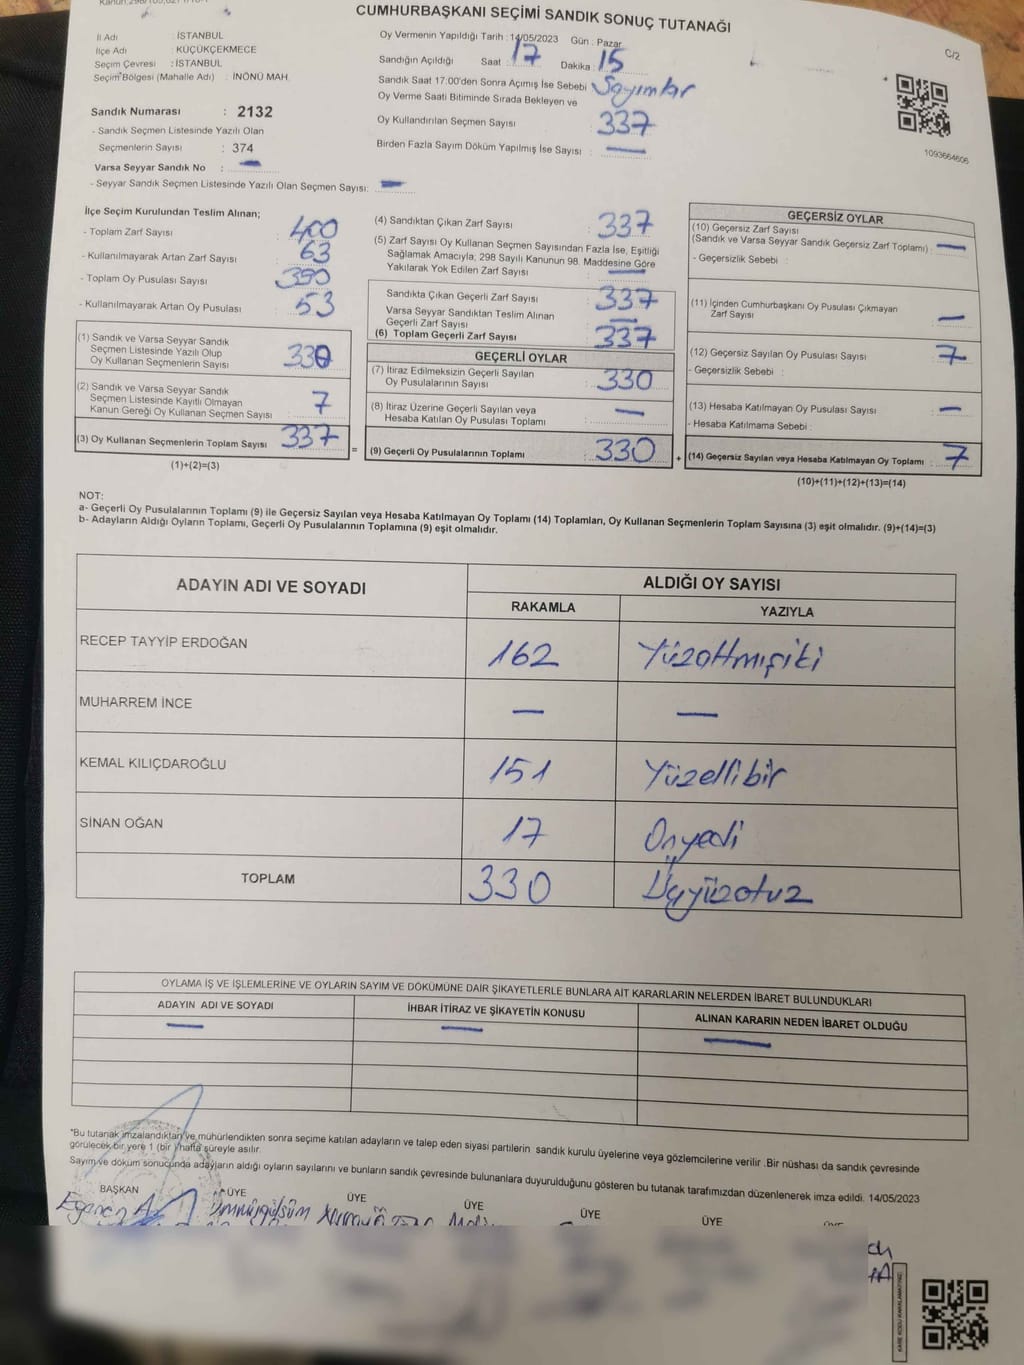 CUMHURBAŞKANI SEÇİMİ SANDIK SONUÇ TUTANAĞI
C/2
İl Adı : İSTANBUL
İlçe Adı : KÜÇÜKÇEKMECE
Seçim Çevresi : İSTANBUL
Seçim Bölgesi (Mahalle Adı) : İNÖNÜ MAH.
Sandık Numarası : 2132
- Sandık Seçmen Listesinde Yazılı Olan
Seçmenlerin Sayısı : 374
Varsa Seyyar Sandık No : —
- Seyyar Sandık Seçmen Listesinde Yazılı Olan Seçmen Sayısı: —
Oy Vermenin Yapıldığı Tarih : 14/05/2023 Gün : Pazar
Sandığın Açıldığı Saat : 17 Dakika : 15
Sandık Saat 17:00'den Sonra Açımış İse Sebebi
Oy Verme Saati Bitiminde Sırada Bekleyen ve
Oy Kullandırılan Seçmen Sayısı : 337
Birden Fazla Sayım Döküm Yapılmış İse Sayısı : —
1093664606
İlçe Seçim Kurulundan Teslim Alınan;
- Toplam Zarf Sayısı : 400
- Kullanılmayarak Artan Zarf Sayısı : 63
- Toplam Oy Pusulası Sayısı : 390
- Kullanılmayarak Artan Oy Pusulası : 53
(1) Sandık ve Varsa Seyyar Sandık
Seçmen Listesinde Yazılı Olup
Oy Kullanan Seçmenlerin Sayısı : 330
(2) Sandık ve Varsa Seyyar Sandık
Seçmen Listesinde Kayıtlı Olmayan
Kanun Gereği Oy Kullanan Seçmen Sayısı : 7
(3) Oy Kullanan Seçmenlerin Toplam Sayısı : 337
(1)+(2)=(3)
(4) Sandıktan Çıkan Zarf Sayısı : 337
(5) Zarf Sayısı Oy Kullanan Seçmen Sayısından Fazla İse, Eşitliği
Sağlamak Amacıyla; 298 Sayılı Kanunun 98. Maddesine Göre
Yakılarak Yok Edilen Zarf Sayısı : —
Sandıkta Çıkan Geçerli Zarf Sayısı : 337
Varsa Seyyar Sandıktan Teslim Alınan
Geçerli Zarf Sayısı : —
(6) Toplam Geçerli Zarf Sayısı : 337
GEÇERLİ OYLAR
(7) İtiraz Edilmeksizin Geçerli Sayılan
Oy Pusulalarının Sayısı : 330
(8) İtiraz Üzerine Geçerli Sayılan veya
Hesaba Katılan Oy Pusulası Toplamı : —
= (9) Geçerli Oy Pusulalarının Toplamı : 330
GEÇERSİZ OYLAR
(10) Geçersiz Zarf Sayısı
(Sandık ve Varsa Seyyar Sandık Geçersiz Zarf Toplamı) : —
- Geçersizlik Sebebi :
(11) İçinden Cumhurbaşkanı Oy Pusulası Çıkmayan
Zarf Sayısı : —
(12) Geçersiz Sayılan Oy Pusulası Sayısı : 7
- Geçersizlik Sebebi :
(13) Hesaba Katılmayan Oy Pusulası Sayısı : —
- Hesaba Katılmama Sebebi :
+ (14) Geçersiz Sayılan veya Hesaba Katılmayan Oy Toplamı : 7
(10)+(11)+(12)+(13)=(14)
NOT:
a- Geçerli Oy Pusulalarının Toplamı (9) ile Geçersiz Sayılan veya Hesaba Katılmayan Oy Toplamı (14) Toplamları, Oy Kullanan Seçmenlerin Toplam Sayısına (3) eşit olmalıdır. (9)+(14)=(3)
b- Adayların Aldığı Oyların Toplamı, Geçerli Oy Pusulalarının Toplamına (9) eşit olmalıdır.
ADAYIN ADI VE SOYADI ALDIĞI OY SAYISI
RAKAMLA YAZIYLA
RECEP TAYYİP ERDOĞAN 162 Yüzaltmışiki
MUHARREM İNCE — —
KEMAL KILIÇDAROĞLU 151 Yüzellibir
SİNAN OĞAN 17 Onyedi
TOPLAM 330 Üçyüzotuz
OYLAMA İŞ VE İŞLEMLERİNE VE OYLARIN SAYIM VE DÖKÜMÜNE DAİR ŞİKAYETLERLE BUNLARA AİT KARARLARIN NELERDEN İBARET BULUNDUKLARI
ADAYIN ADI VE SOYADI İHBAR İTİRAZ VE ŞİKAYETİN KONUSU ALINAN KARARIN NEDEN İBARET OLDUĞU
— — —
*Bu tutanak imzalandıktan ve mühürlendikten sonra seçime katılan adayların ve talep eden siyasi partilerin sandık kurulu üyelerine veya gözlemcilerine verilir .Bir nüshası da sandık çevresinde
görülecek bir yere 1 (bir ) hafta süreyle asılır.
Sayım ve döküm sonucunda adayların aldığı oyların sayılarını ve bunların sandık çevresinde bulunanlara duyurulduğunu gösteren bu tutanak tarafımızdan düzenlenerek imza edildi. 14/05/2023
BAŞKAN ÜYE ÜYE ÜYE ÜYE ÜYE
Ümmügülsüm